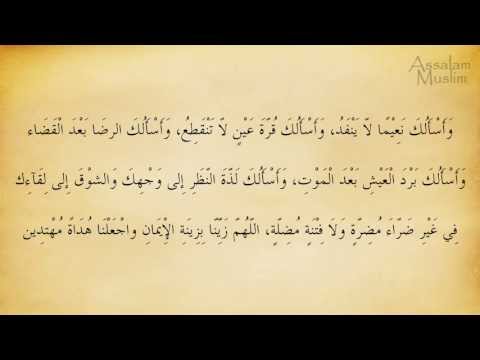 Assalam
Muslim
وَأَسْأَلُكَ نَعِيْمًا لاَ يَنْفَدُ، وَأَسْأَلُكَ قُرَّةَ عَيْنٍ لاَ تَنْقَطِعُ، وَأَسْأَلُكَ الرضَا بَعْدَ الْقَضَاء
وَأَسْأَلُكَ بَرْدَ الْعَيْشِ بَعْدَ الْمَوْتِ، وَأَسْأَلُكَ لَذَّةَ النَّظَرِ إِلى وَجْهِكَ وَالشوْقَ إِلى لِقَآءِك
فِي غَيْرِ ضَرَّاءَ مُضِرَّةٍ وَلاَ فِتْنَةٍ مُضِلَّةٍ، اللّهُمَّ زَيِّنَّا بِزِينَةِ الْإِيمَانِ وَاجْعَلْنَا هُدَاةً مُهْتَدِين